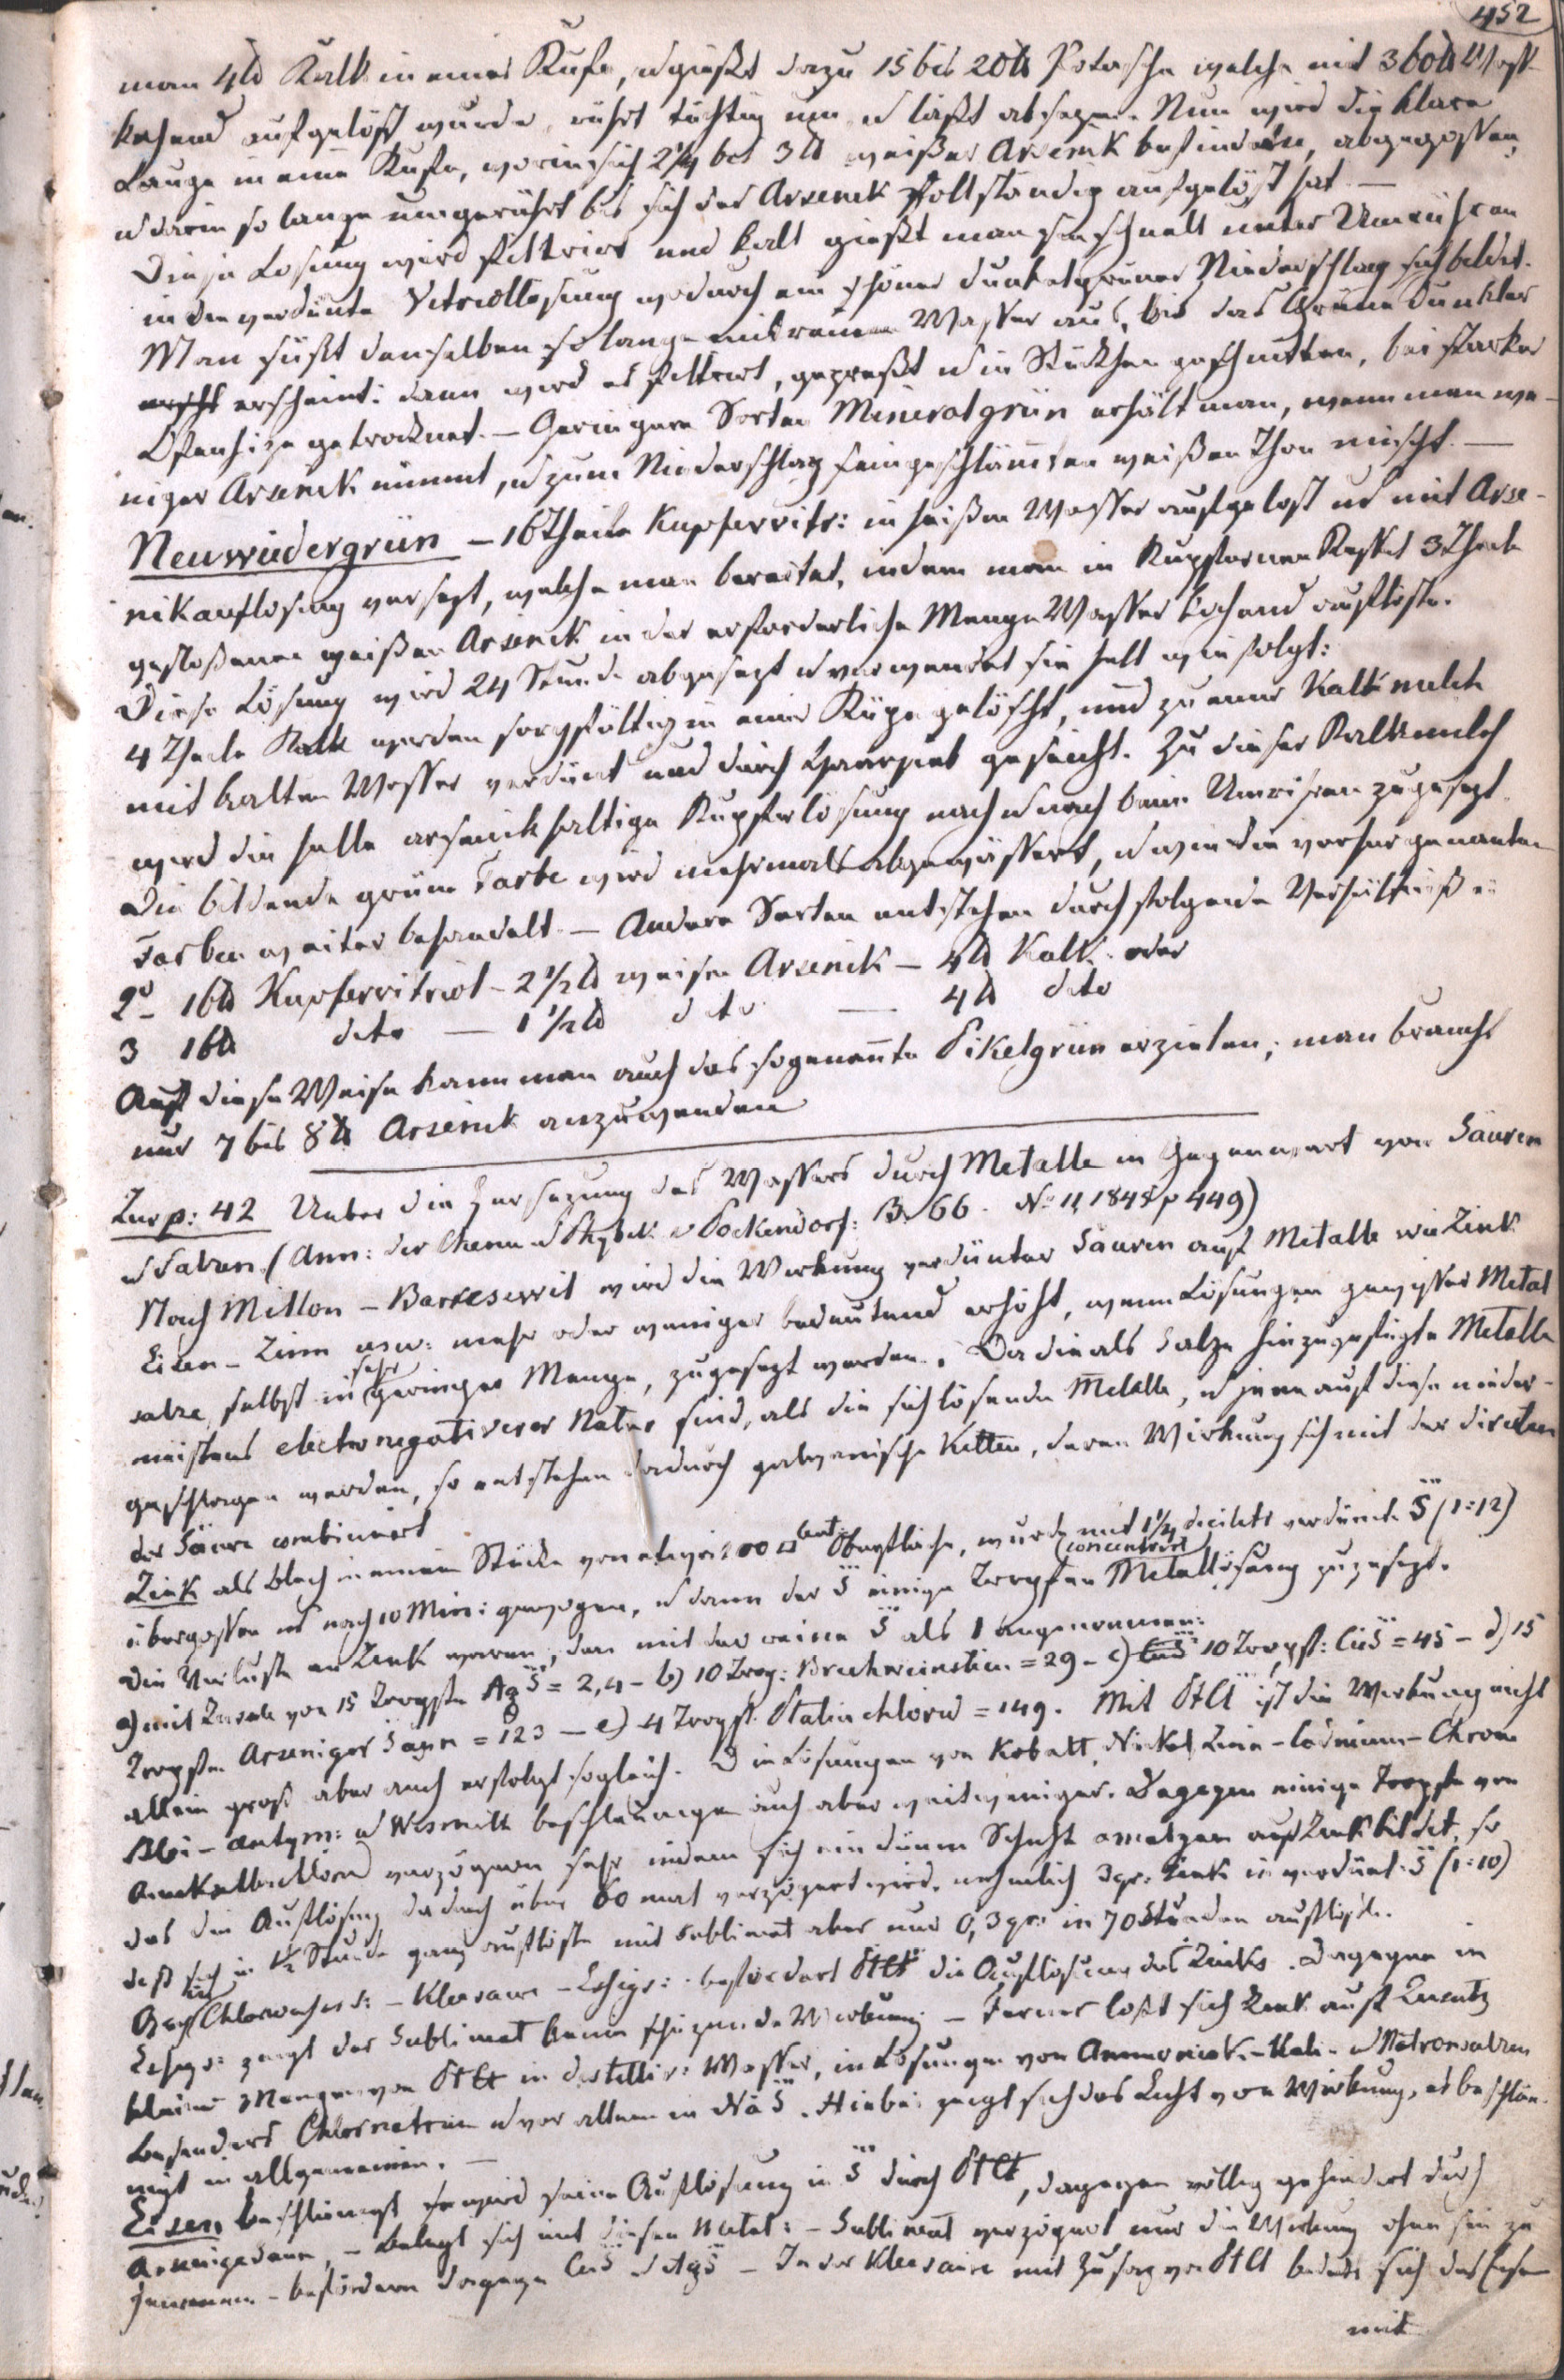 452
man 4℔ Kalk in einer Kufe, u gießt dazu 15 bis 20℔ Potasche welche mit 360℔ Wass
kochend aufgelößt wurde, rührt tüchtig um u läßt absezen. Nun wird die klare
Lauge in eine Kufe, worin sich 2¼ bis 3℔ weißer Arsenik befinden, abgegossen,
u darin so lange umgerührt bis sich der Arsenik vollständig aufgelöst hat. —
Diese Losung wird filtrirt und kalt gießt man sie schnell unter Umrühren
in die verdünte Vitriollösung wodurch ein schöner dunkelgrüner Niederschlag sich bildet.
Man süßt denselben so lange mit reinem Wasser aus, bis das Grüne dunkler
erscheint: dann wird es filtrirt, gepreßt u in Stückchen geschnitten, bei starker
Ofenhize getrocknet. — Geringere Sorten Mineralgrün erhält man, wenn man we-
niger Arsenik nimmt, u zum Niederschlag feingeschlämten weißen Thon mischt. —
Neuwiedergrün — 16 Theile Kupfervitr: in heißen Wasser aufgelost und mit Arse-
nikauflosung versezt, welche man bereitet, indem man in Kupfernen Kessel 3 Theile
gestoßenen weißen Arsenik in der erforderliche Menge Wasser kochend auflöste.
Diese Lösung wird 24 Stunde abgesezt u verwendet sie halt wie folgt:
4 Theile Kalk werden sorgfältig in einer Küpe gelöscht, und zu einer Kalkmilch
mit kalten Wasser verdünt und durch Haarsieb geseicht. Zu dieser Kalkmilch
wird die helle arsenikhaltige Kupferlösung nach u nach beim Umrühren zugesezt.
Die bildende grüne Farbe wird mehrmals abgewässert, u wie die vorher genanten
Farben weiter behandelt. — Andere Sorten entstehen durch folgende Verhältniße
2º 16℔ Kupfervitriol – 2½℔ weisen Arsenik — 4℔ Kalk oder
3 16℔ deto — 1½℔ deto — 4℔ deto
Auf diese Weise kann man auch das sogenente Pikelgrün erzielen; man braucht
nur 7 bis 8℔ Arsenik anzuwenden
Zur p: 42 Ueber die Zersezung des Wassers durch Metalle in Gegenwart von Säuren
u Salzen (Ann: der Chem u Physik v Pockendorf: B. 66. Nº 11, 1845 p 449)
Nach Millon – wird die Wirkung verdünter Säuren auf Metalle wie Zink
Eisen – Zinn usw: mehr oder weniger bedeutend erhöht, wenn Lösungen gewisser Metal
salze, selbst in sehr geringer Menge, zugesezt werden. Da die als Salze hinzugefügte Metalle
meistens electronegativerer Natur sind, als die sich lösende Metalle, u jene auf diese nieder-
geschlagen werden, so entstehen dadurch galvanische Ketten, deren Wirkung sich mit der directen
der Säure combinirt
Zink als Blech in einem Stücke von etwa 200 □ Oberfläche, wurde mit 1¼ verdünnte S̈ (1:12)
übergossen u nach 10 Min: gewogen, u dann der S̈ einige Tropfen concentrirt Metallösung zugesezt.
Die Verluste an Zink waren, den mit der reinen S̈ als 1 angenommen:
a) mit Zusatz von 15 Tropfen Ag S̈ = 2,4 – b) 10 Trop: Brechweinstein = 29 – c) 10 Tropf: Cu S̈ = 45 – d) 15
Tropfen Arseniger Säure = 123 — e) 4 Tropf Platinchlorid = 149. Mit PtCl ist die Wirkung nicht
allein groß aber auch erfolgt sogleich. Die Lösungen von Kobalt, Nickel, Zinn – Cadmium – Chrom
Blei – Antym: u Wismuth beschleunigen auch aber weit weniger. Dagegen einige Tropfen von
verzögern sehr indem sich ein dünne Schicht amalgam auf Zink bildet, so
das die Auflösung dadurch über 60 mal verzögert wird. nehmlich 3 gr: Zink in verdünt: S̈ (1:10)
daß sich in ½ Stunde ganz auflöste mit Sublimat aber nur 0,3 gr: in 70 Stunden auflöste.
Chlorwasserst: – Kleesaure – Essigs: befördert PtCl die Auflösung des Zinks. Dagegen in
Essigs: zeigt der Sublimat keine schüzende Wirkung – Ferner lößt sich Zink auf Zusatz
kleiner Mengen von PtCl in destillir: Wasser, in Lösungen von Ammoniak – Kali – u Natronsalzen
besonders Chlornatrium u vor allem in Na S̈. Hiebei zeigt sich das Licht von Wirkung, es beschleu-
nigt im allgemeinen. —
Eisen beschleunigt wird seine Auflösung in S̈ durch PtCl, dagegen völlig gehindert durch
– belegt sich mit diesen Metal: – Sublimat verzögert nur die Wirkung ohne sie zu
hemmen – befördern dagegen Cu S̈ u Ag S̈ – In der Kleesaure mit Zusaz von PtCl bedekt sich das Eisen
mit